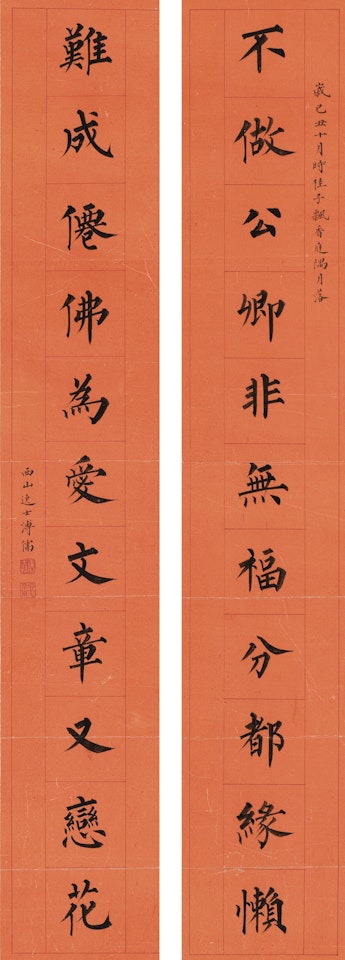 歲己丑十月時桂子飄香庭隅月落
不做公卿非無福分都緣懶
難成僊佛為愛文章又戀花
西山逸士溥儒